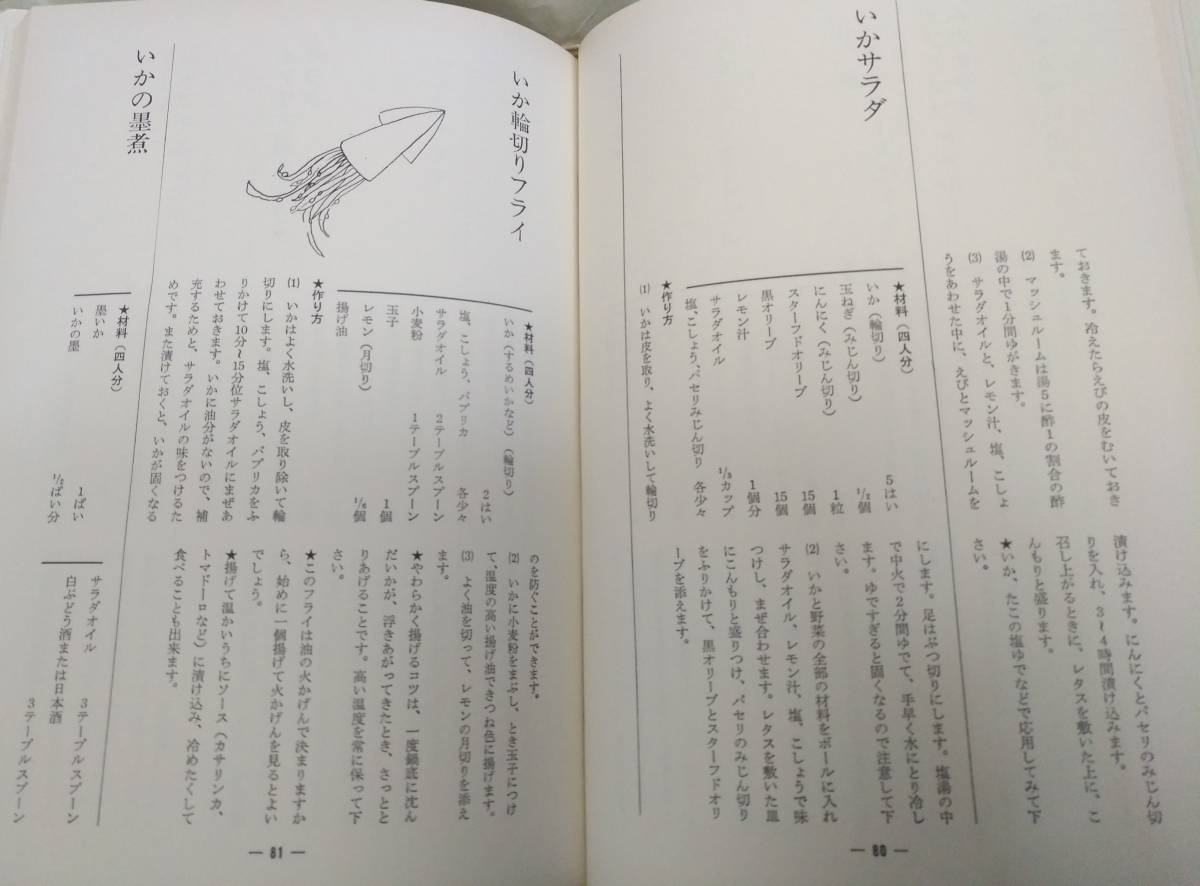 ておきます。冷えたらえびの皮をむいておき
ます。
(2) マッシュルームは湯5に酢1の割合の酢
湯の中で1分間ゆがきます。
(3) サラダオイルと、レモン汁、塩、こしょ
うをあわせた中に、えびとマッシュルームを
漬け込みます。にんにくとパセリのみじん切
りを入れ、3〜4時間漬け込みます。
召し上がるときに、レタスを敷いた上に、こ
んもりと盛ります。
★いか、たこの塩ゆでなどで応用してみて下
さい。
いかサラダ
★材料(四人分)
いか(輪切り) 5はい
玉ねぎ(みじん切り) 1/2個
にんにく(みじん切り) 1粒
スタフードオリーブ 15個
黒オリーブ 15個
レモン汁 1個分
サラダオイル 1/3カップ
塩、こしょう、パセリみじん切り 各少々
★作り方
(1) いかは皮を取り、よく水洗いして輪切り
にします。足はぶつ切りにします。塩湯の中
で中火で2分間ゆでて、手早く水にとり冷し
ます。ゆですぎると固くなるので注意して下
さい。
(2) いかと野菜の全部の材料をボールに入れ
サラダオイル、レモン汁、塩、こしょうで味
つけし、まぜ合わせます。レタスを敷いた皿
にこんもりと盛りつけ、パセリのみじん切り
をふりかけて、黒オリーブとスターフドオリ
ーブを添えます。
— 80 —
いか輪切りフライ
★材料(四人分)
いか(するめいかなど)(輪切り)
2はい
塩、こしょう、パプリカ 各少々
サラダオイル 2テーブルスプーン
小麦粉 1テーブルスプーン
玉子 1個
レモン(月切り) 1/6個
揚げ油
★作り方
(1) いかはよく水洗いし、皮を取り除いて輪
切りにします。塩、こしょう、パプリカをふ
りかけて10分〜15分位サラダオイルにまぜあ
わせておきます。いかに油分がないので、補
充するためと、サラダオイルの味をつけるた
めです。また漬けておくと、いかが固くなる
のを防ぐことができます。
(2) いかに小麦粉をまぶし、とき玉子につけ
て、温度の高い揚げ油できつね色に揚げます。
(3) よく油を切って、レモンの月切りを添え
ます。
★やわらかく揚げるコツは、一度鍋底に沈ん
だいかが、浮きあがってきたとき、さっと
りあげることです。高い温度を常に保って下
さい。
★このフライは油の火かげんで決まりますか
ら、始めに一個揚げて火かげんを見るとよい
でしょう。
★揚げて温かいうちにソース(カサリンカ、
トマドーロなど)に漬け込み、冷めたくして
食べることも出来ます。
いかの墨煮
★材料(四人分)
墨いか 1ぱい
いかの墨 1/2ぱい分
サラダオイル 3テーブルスプーン
白ぶどう酒または日本酒
3テーブルスプーン
— 81 —